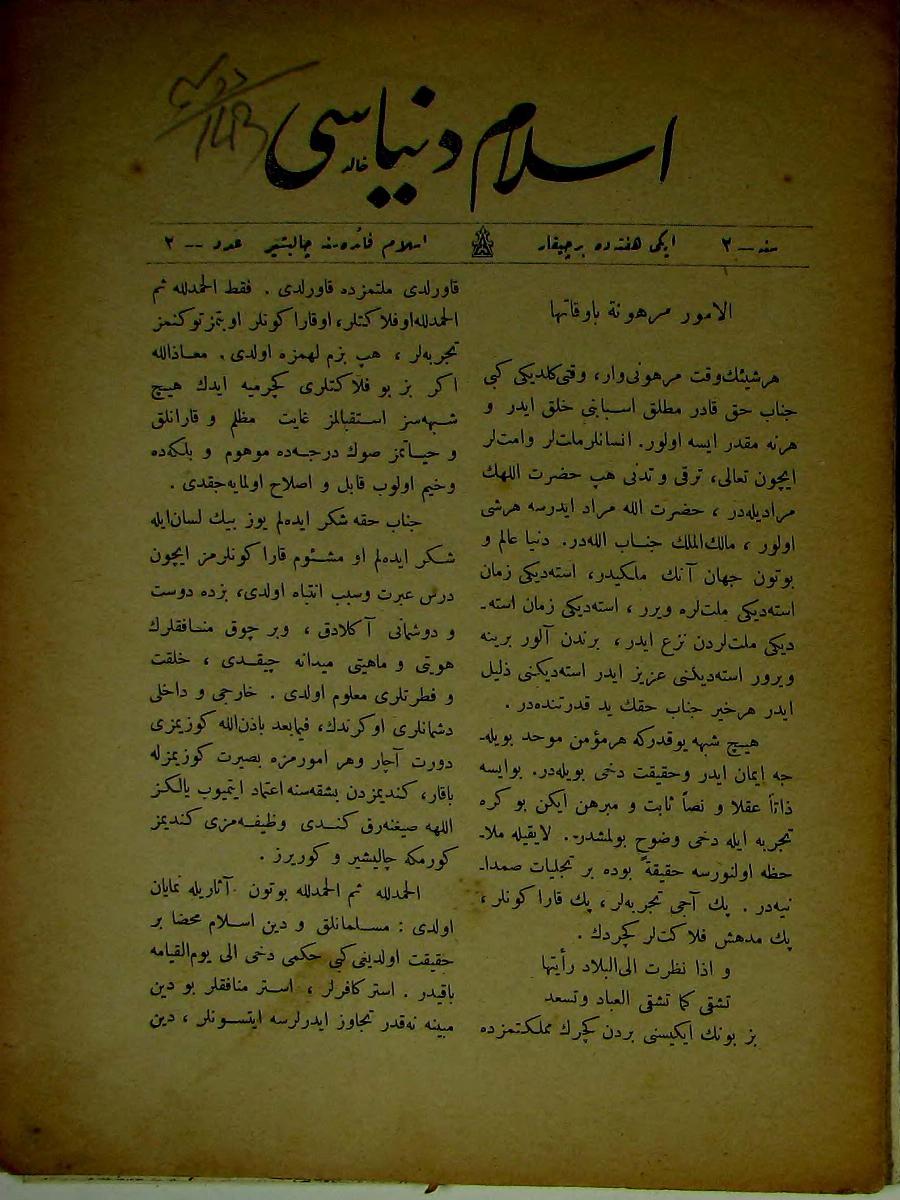 اسلام دنیاسی
سنه — ٢ ایکی هفته‌ده بر چیقار اسلام فائده‌سنه چالیشیر عدد — ٢
الامور مرهونة باوقاتها
هر شیئك وقت مرهونی وار، وقتی كلدیكی كبی
جناب حق قادر مطلق اسبابنی خلق ایدر و
هرنه مقدر ایسه اولور. انسانلر ملت‌لر وامت‌لر
ایچون تعالی، ترقی و تدنی هپ حضرت اللهك
مرادیله‌در ، حضرت الله مراد ایدرسه هرشی
اولور ، مالك‌الملك جناب الله‌در. دنیا عالم و
بوتون جهان آنك ملكیدر، استه‌دیكی زمان
استه‌دیكی ملت‌لره ویرر ، استه‌دیكی زمان استه‌ـ
دیكی ملت‌لردن نزع ایدر ، برندن آلور برینه
ویرور استه‌دیكنی عزیز ایدر استه‌دیكنی ذلیل
ایدر هرخیر جناب حقك ید قدرتنده‌در .
هیچ شبهه یوقدركه هر مؤمن موحد بویله‌ـ
جه ایمان ایدر وحقیقت دخی بویله‌در. بوایسه
ذاتاً عقلا و نصاً ثابت و مبرهن ایكن بو كره
تجربه ایله دخی وضوح بولمشدر. لایقیله ملا‌ـ
حظه اولنورسه حقیقةً بوده بر تجلیات صمدا‌ـ
نیه‌در . پك آجی تجربه‌لر ، پك قارا كونلر ،
پك مدهش فلاكت‌لر كچردك .
و اذا نظرت الی‌البلاد رأیتها
تشقی كما تشقی العباد وتسعد
بز بونك ایكیسنی بردن كچرك مملكتمزده
قاورلدی ملتمزده قاورلدی . فقط الحمدلله ثم
الحمدلله اوفلاكتلر، اوقارا كونلر اوبتمز توكنمز
تجربه‌لر ، هپ بزم لهمزه اولدی. معاذالله
اكر بز بو فلاكتلری كچرمیه ایدك هیچ
شبهه‌سز استقبالمز غایت مظلم و قارانلق
و حیاتمز صوك درجه‌ده موهوم و بلكه‌ده
وخیم اولوب قابل و اصلاح اولمایه‌جقدی .
جناب حقه شكر ایده‌لم یوز بیك لسان‌ایله
شكر ایده‌لم او مشئوم قارا كونلرمز ایچون
درس عبرت وسبب انتباه اولدی، بزده دوست
و دوشمانی آكلادق ، وبر چوق منافقلرك
هویتی و ماهیتی میدانه چیقدی ، خلقت
و فطرتلری معلوم اولدی . خارجی و داخلی
دشمانلری اوكرندك، فیمابعد باذن‌الله كوزیمزی
دورت آچار وهر امورمزه بصیرت كوزیمزله
باقار، كندیمزدن بشقه‌سنه اعتماد ایتمیوب یالكز
اللهه صیغنه‌رق كندی وظیفه‌مزی كندیمز
كورمكه چالیشیر و كوریرز .
الحمدلله ثم الحمدلله بوتون آثاریله نمایان
اولدی : مسلمانلق و دین اسلام محضا بر
حقیقت اولدیغی كبی حكمی دخی الی یوم‌القیامه
باقیدر . استر كافرلر ، استر منافقلر بو دین
مبینه نه‌قدر تجاوز ایدرلرسه ایتسونلر ، دین